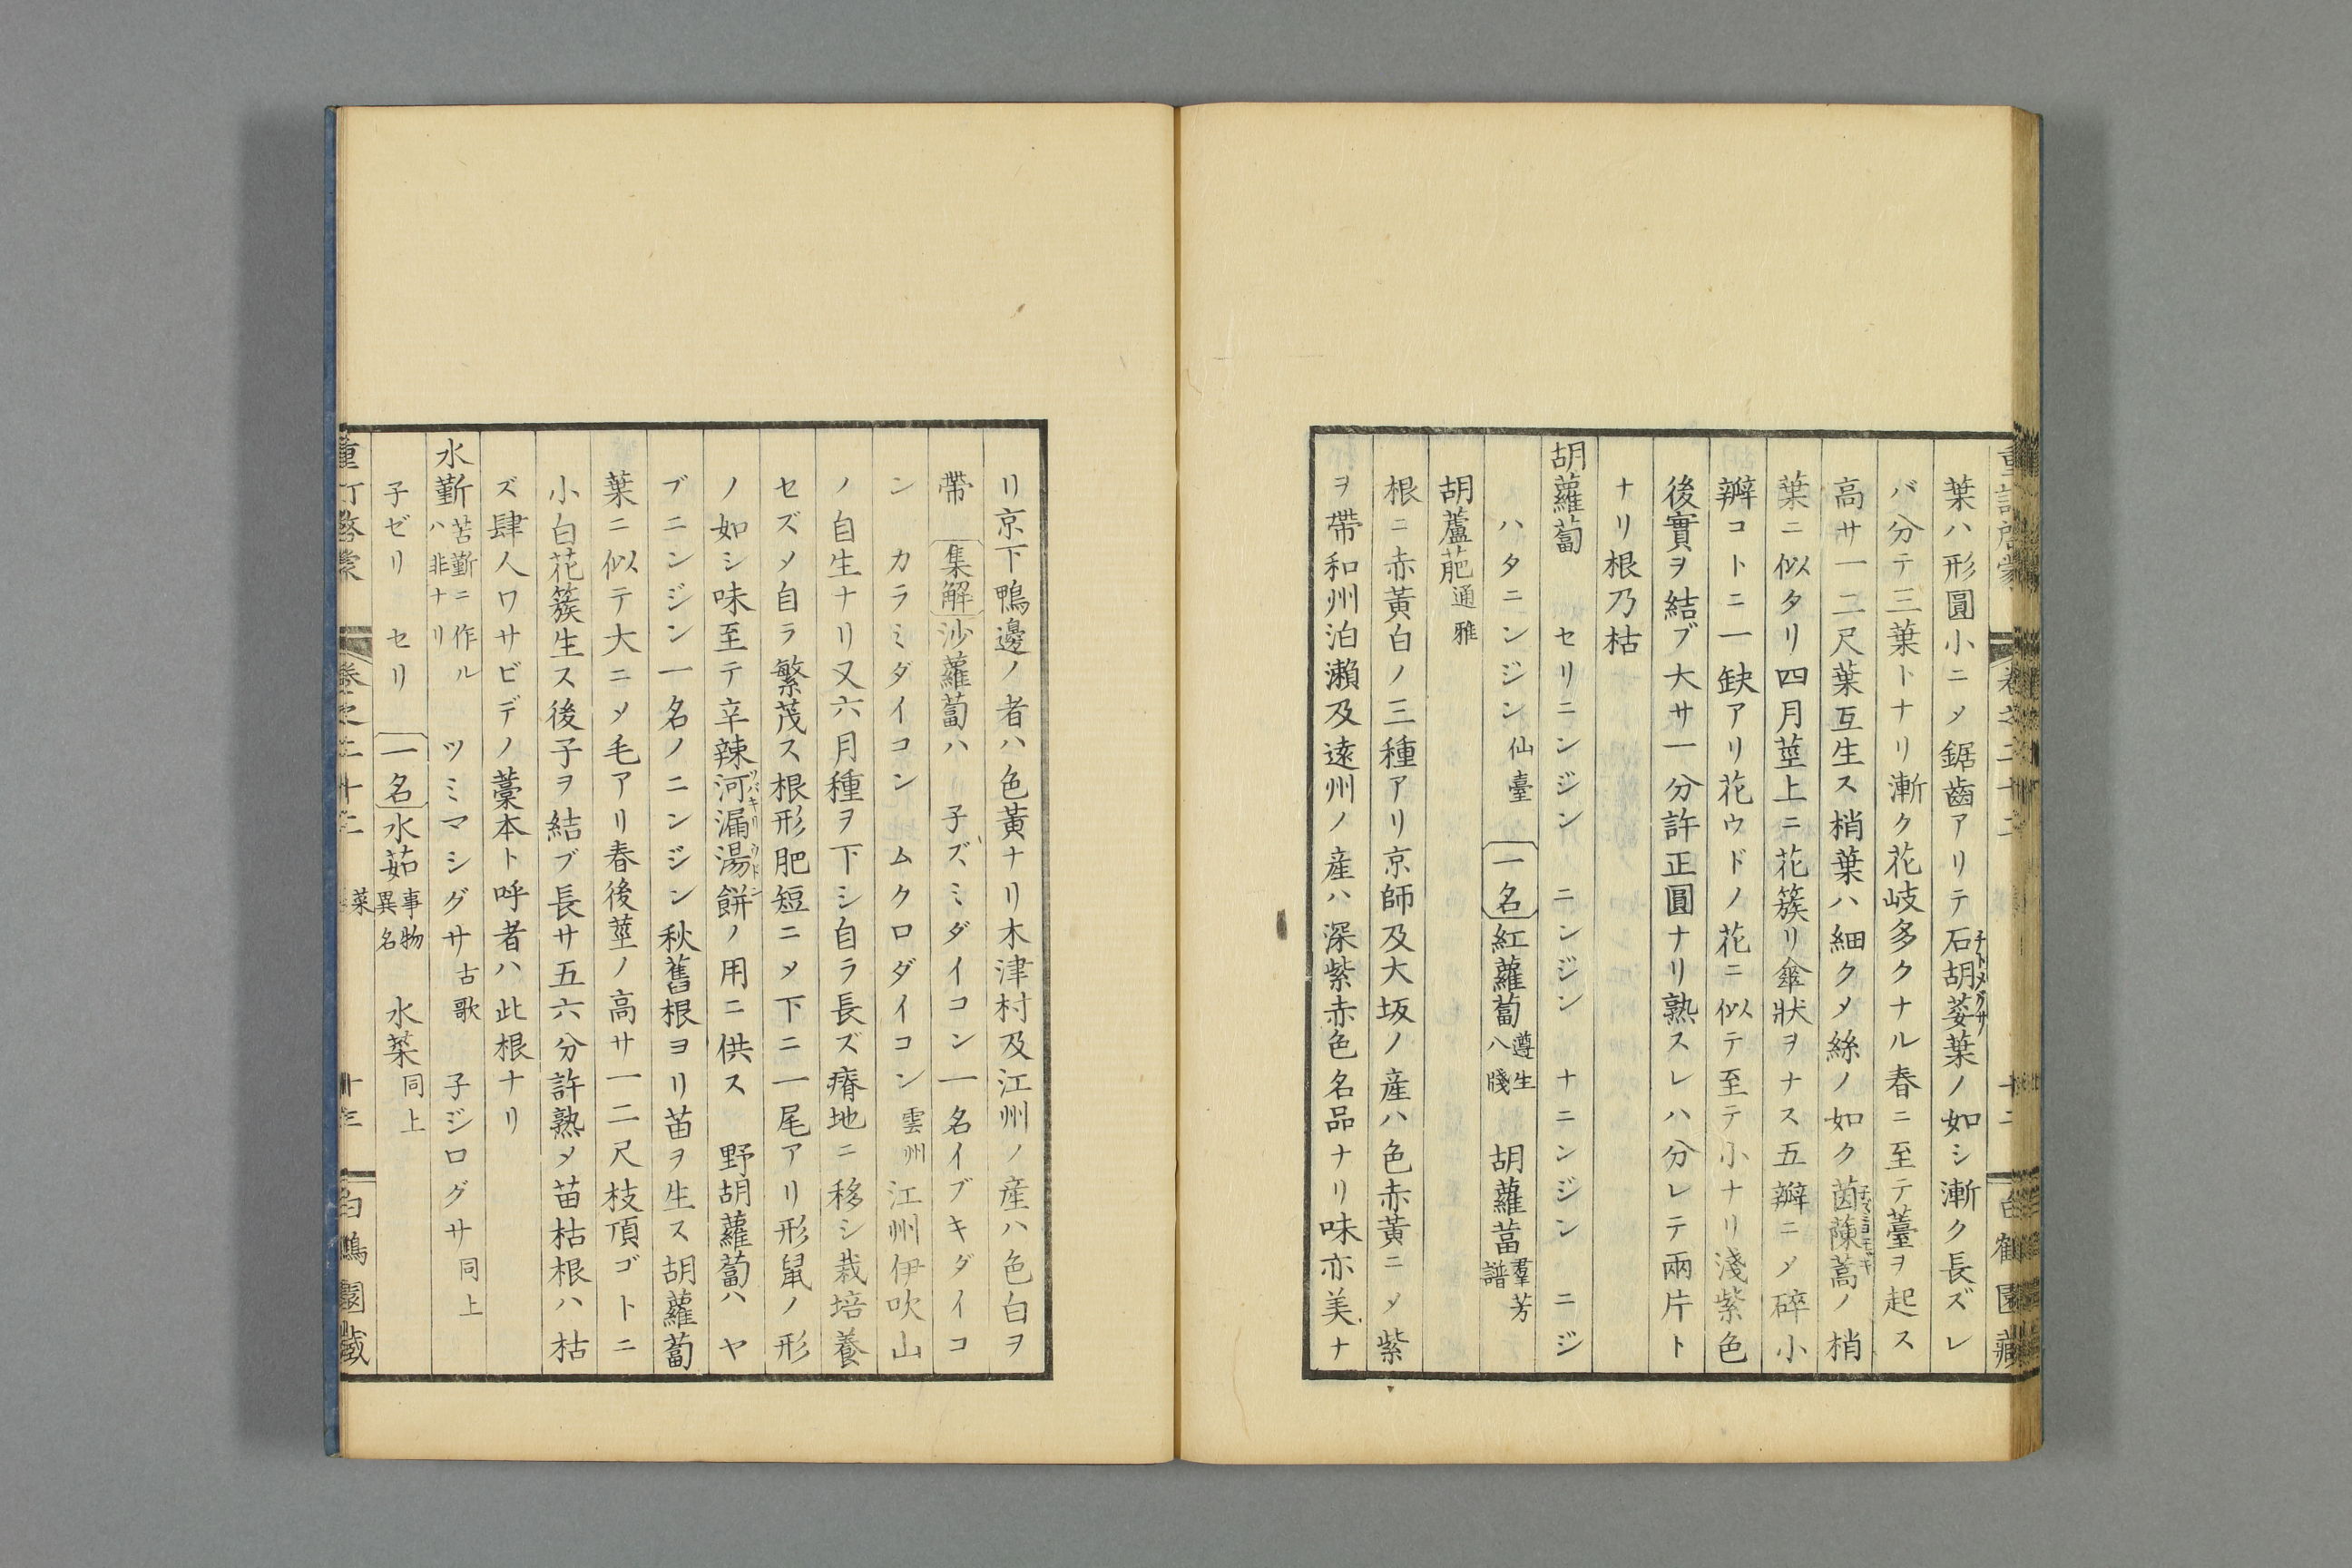 葉ハ形圓小ニメ鋸齒アリテ石胡荽葉ノ如シ漸ク長ズレ
バ分テ三葉トナリ漸ク花岐多クナル春ニ至テ薹ヲ起ス
高サ一二尺葉互生ス梢葉ハ細クメ絲ノ如ク茵蔯蒿ノ梢
葉ニ似タリ四月莖上ニ花簇リ傘狀ヲナス五瓣ニメ碎小
瓣コトニ一缺アリ花ウドノ花ニ似テ至テ小ナリ淺紫色
後實ヲ結ブ大サ一分許正圓ナリ熟スレハ分レテ兩片ト
ナリ根乃枯
胡蘿蔔 セリニンジン ニンジン ナニンジン ニジ
ハタニンジン仙臺 一名 紅蘿蔔遵生八牋 胡蘿菖羣芳譜
胡蘆萉通雅
根ニ赤黃白ノ三種アリ京師及大坂ノ產ハ色赤黃ニメ紫
ヲ帶和州泊瀨及遠州ノ產ハ深紫赤色名品ナリ味亦美ナ
リ京下鴨邊ノ者ハ色黃ナリ木津村及江州ノ產ハ色白ヲ
帶 集解 沙蘿蔔ハ 子ズミダイコン一名イブキダイコ
ン カラミダイコン ムクロダイコン雲州江州伊吹山
ノ自生ナリ又六月種ヲ下シ自ラ長ズ瘠地ニ移シ栽培養
セズメ自ラ繁茂ス根形肥短ニメ下ニ一尾アリ形鼠ノ形
ノ如シ味至テ辛辣河漏湯餅ノ用ニ供ス 野胡蘿蔔ハヤ
ブニンジン一名ノニンジン秋舊根ヨリ苗ヲ生ス胡蘿蔔
葉ニ似テ大ニメ毛アリ春後莖ノ高サ一二尺枝頂ゴトニ
小白花簇生ス後子ヲ結ブ長サ五六分許熟メ苗枯根ハ枯
ズ肆人ワサビデノ藁本ト呼者ハ此根ナリ
水斳苦斳ニ作ルハ非ナリ ツミマシグサ古歌 子ジログサ同上
子ゼリ セリ 一名 水茹事物異名 水葇同上